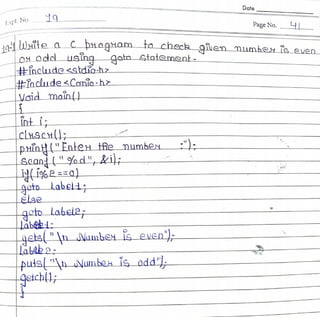 Date
Expt. No. 19
Page No. 41
19-1 Write a C program to check given number is even
or odd using goto statement.
#include<stdio.h>
#include<Conio.h>
Void main()
{
int i;
Clrscr();
printf("Enter the number :");
Scanf("%d", &i);
if(i%2==0)
goto Label1;
else
goto Label2;
label1:
gets("\n Number is even");
label2:
puts("\n Number is odd");
getch();
}